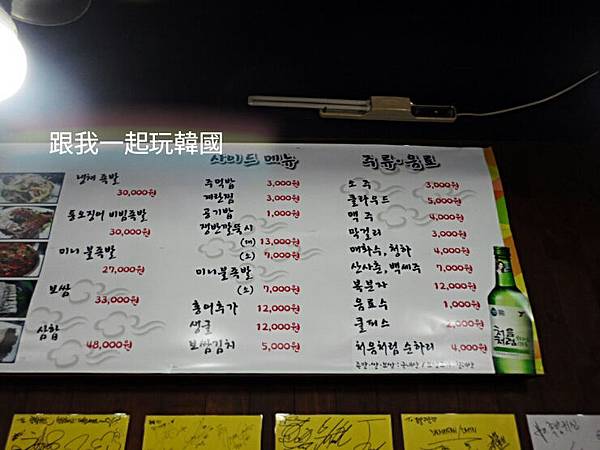 跟我一起玩韓國
냉채 족발
30,000원
통오징어 비빔족발
30,000원
미니 불족발
27,000원
보쌈
33,000원
삼합
48,000원
사이드 메뉴
주먹밥 3,000원
계란찜 3,000원
공기밥 1,000원
쟁반칼국시
(대) 13,000원
(소) 7,000원
미니불족발
(소) 7,000원
홍어추가 12,000원
생굴 12,000원
보쌈김치 5,000원
주류·음료
소 주 3,000원
클라우드 5,000원
맥 주 4,000원
막걸리 3,000원
매화수, 청하 4,000원
산사춘, 백세주 7,000원
복분자 12,000원
음료수 1,000원
쿨피스 2,000원
처음처럼 순하리 4,000원
처음처럼